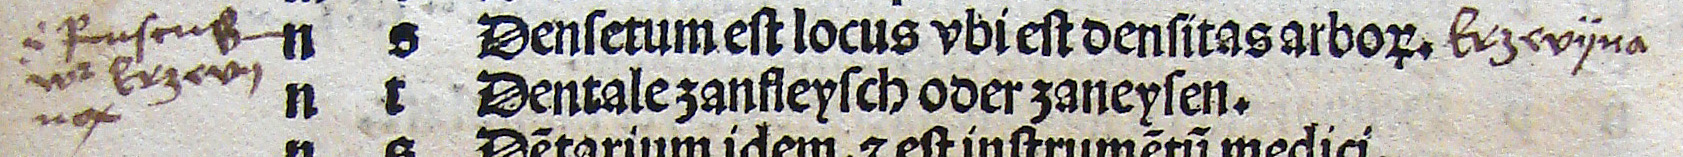 n s Denſetum eſt locus vbi eſt denſitas arboꝝ. krzevijna
n t Dentale zanfleyſch oder zaneyſen.
n s Dẽtarium idem. ⁊ eſt inſtrumẽtũ medici.